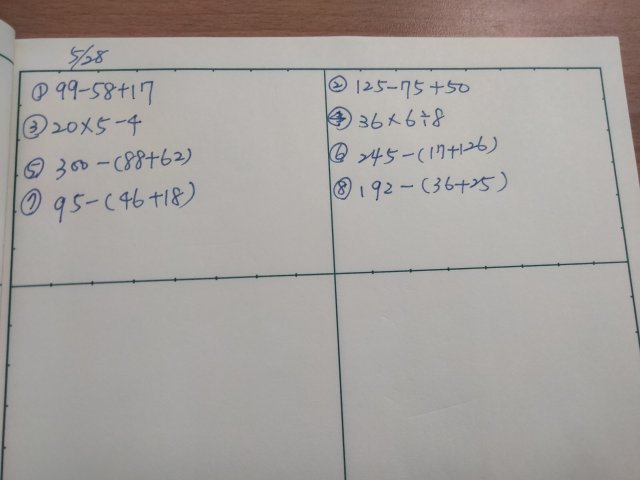 5/28
① 99-58+17
② 125-75+50
③ 20×5-4
④ 36×6÷8
⑤ 300-(88+62)
⑥ 245-(17+126)
⑦ 95-(46+18)
⑧ 192-(36+25)